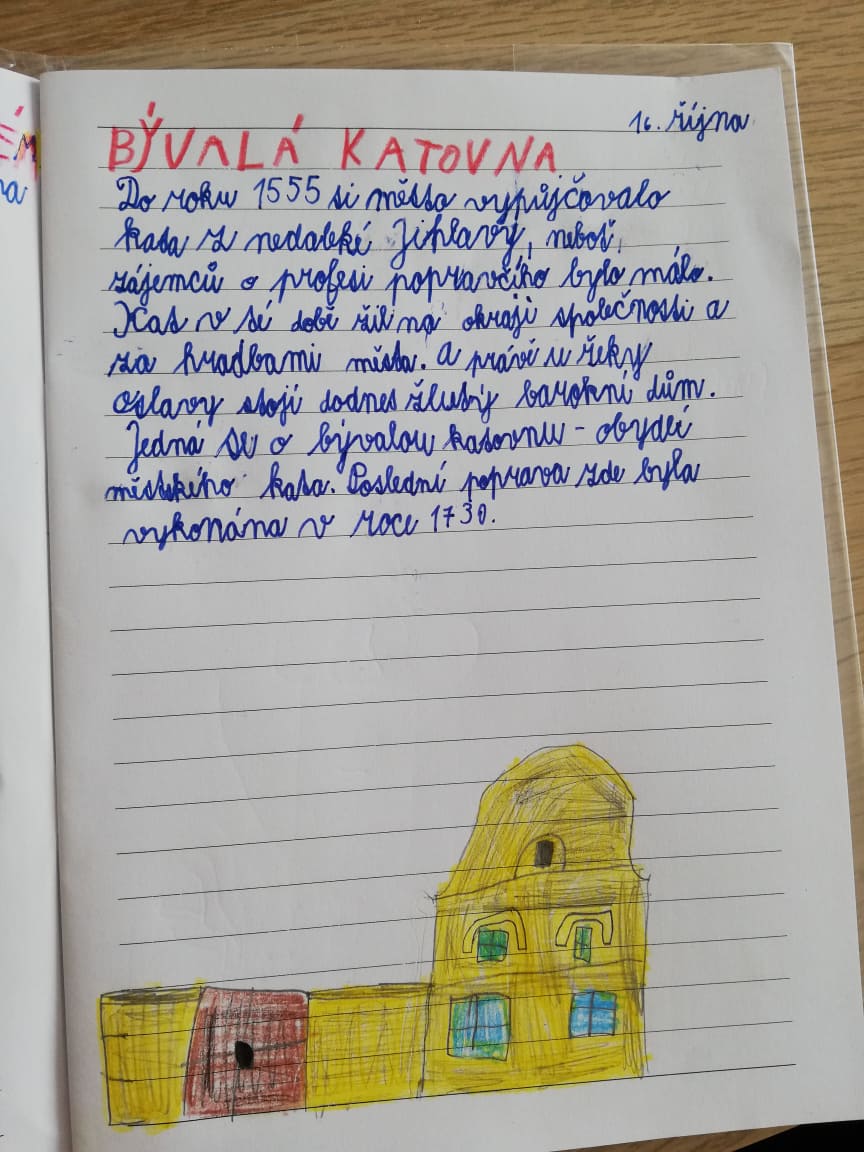 16. října
BÝVALÁ KATOVNA
Do roku 1555 si město vypůjčovalo
kata z nedaleké Jihlavy, neboť
zájemců o profesi popravčího bylo málo.
Kat v té době žil na okraji společnosti a
za hradbami města. A právě u řeky
Oslavy stojí dodnes žlutý barokní dům.
Jedná se o bývalou katovnu - obydlí
městského kata. Poslední poprava zde byla
vykonána v roce 1730.